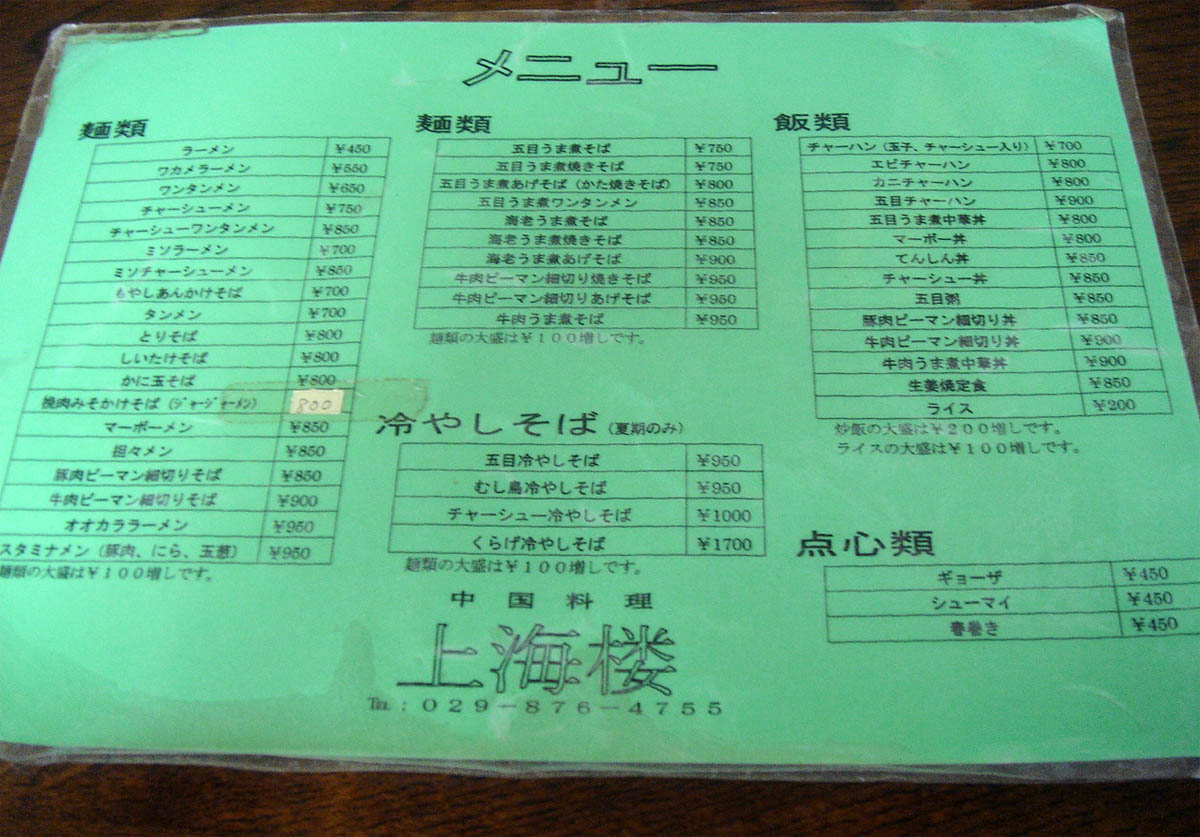 メニュー
麺類
ラーメン ¥450
ワカメラーメン ¥550
ワンタンメン ¥650
チャーシューメン ¥750
チャーシューワンタンメン ¥850
ミソラーメン ¥700
ミソチャーシューメン ¥850
もやしあんかけそば ¥700
タンメン ¥700
とりそば ¥800
しいたけそば ¥800
かに玉そば ¥800
挽肉みそかけそば (ジャージャーメン) 800
マーボーメン ¥850
担々メン ¥850
豚肉ピーマン細切りそば ¥850
牛肉ピーマン細切りそば ¥900
オオカララーメン ¥950
スタミナメン (豚肉、にら、玉葱) ¥950
麺類の大盛は¥100増しです。
麺類
五目うま煮そば ¥750
五目うま煮焼きそば ¥750
五目うま煮あげそば (かた焼きそば) ¥800
五目うま煮ワンタンメン ¥850
海老うま煮そば ¥850
海老うま煮焼きそば ¥850
海老うま煮あげそば ¥900
牛肉ピーマン細切り焼きそば ¥950
牛肉ピーマン細切りあげそば ¥950
牛肉うま煮そば ¥950
麺類の大盛は¥100増しです。
冷やしそば (夏期のみ)
五目冷やしそば ¥950
むし鳥冷やしそば ¥950
チャーシュー冷やしそば ¥1000
くらげ冷やしそば ¥1700
麺類の大盛は¥100増しです。
飯類
チャーハン (玉子、チャーシュー入り) ¥700
エビチャーハン ¥800
カニチャーハン ¥800
五目チャーハン ¥900
五目うま煮中華丼 ¥800
マーボー丼 ¥800
てんしん丼 ¥850
チャーシュー丼 ¥850
五目粥 ¥850
豚肉ピーマン細切り丼 ¥850
牛肉ピーマン細切り丼 ¥900
牛肉うま煮中華丼 ¥900
生姜焼定食 ¥850
ライス ¥200
炒飯の大盛は¥200増しです。
ライスの大盛は¥100増しです。
点心類
ギョーザ ¥450
シューマイ ¥450
春巻き ¥450
中国料理
上海楼
℡:029-876-4755